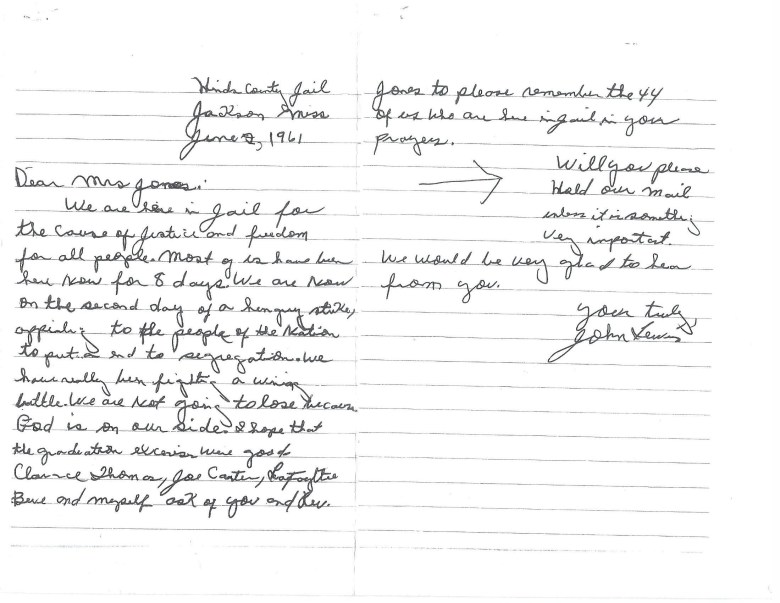 Hinds County Jail
Jackson Miss
June 2, 1961
Dear Mrs Jones:
We are here in Jail for
the cause of Justice and freedom
for all people. Most of is have been
here now for 8 days. We are now
on the second day of a hunguy strike,
appialing to the people of the Nation
to put a end to segregation. We
have really been fighting a wining
battle. We are not going to lose because
God is on our side. I hope that
the graduation excerises were good
Clarence Thomas, Joe Carter, Lafayttee
Beve and myself ask of you and Rev.
Jones to please remember the 44
of us who are here in jail in your
prayers.
Will you please
Hold our mail
unless it is something
very important.
We would be very glad to hear
from you.
your truly,
John Lewis